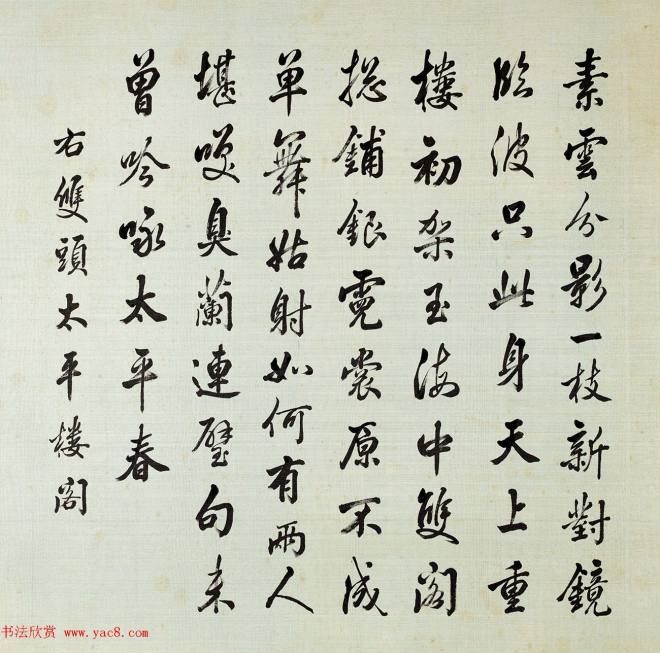 素雲分影一枝新對鏡
臨波只此身天上重
樓初架玉海中雙閣
捴鋪銀霓裳原不成
單舞姑射如何有兩人
堪咲臭蘭連璧句未
曾吟咏太平春
右雙頭太平樓閣
书法欣赏 www.yac8.com